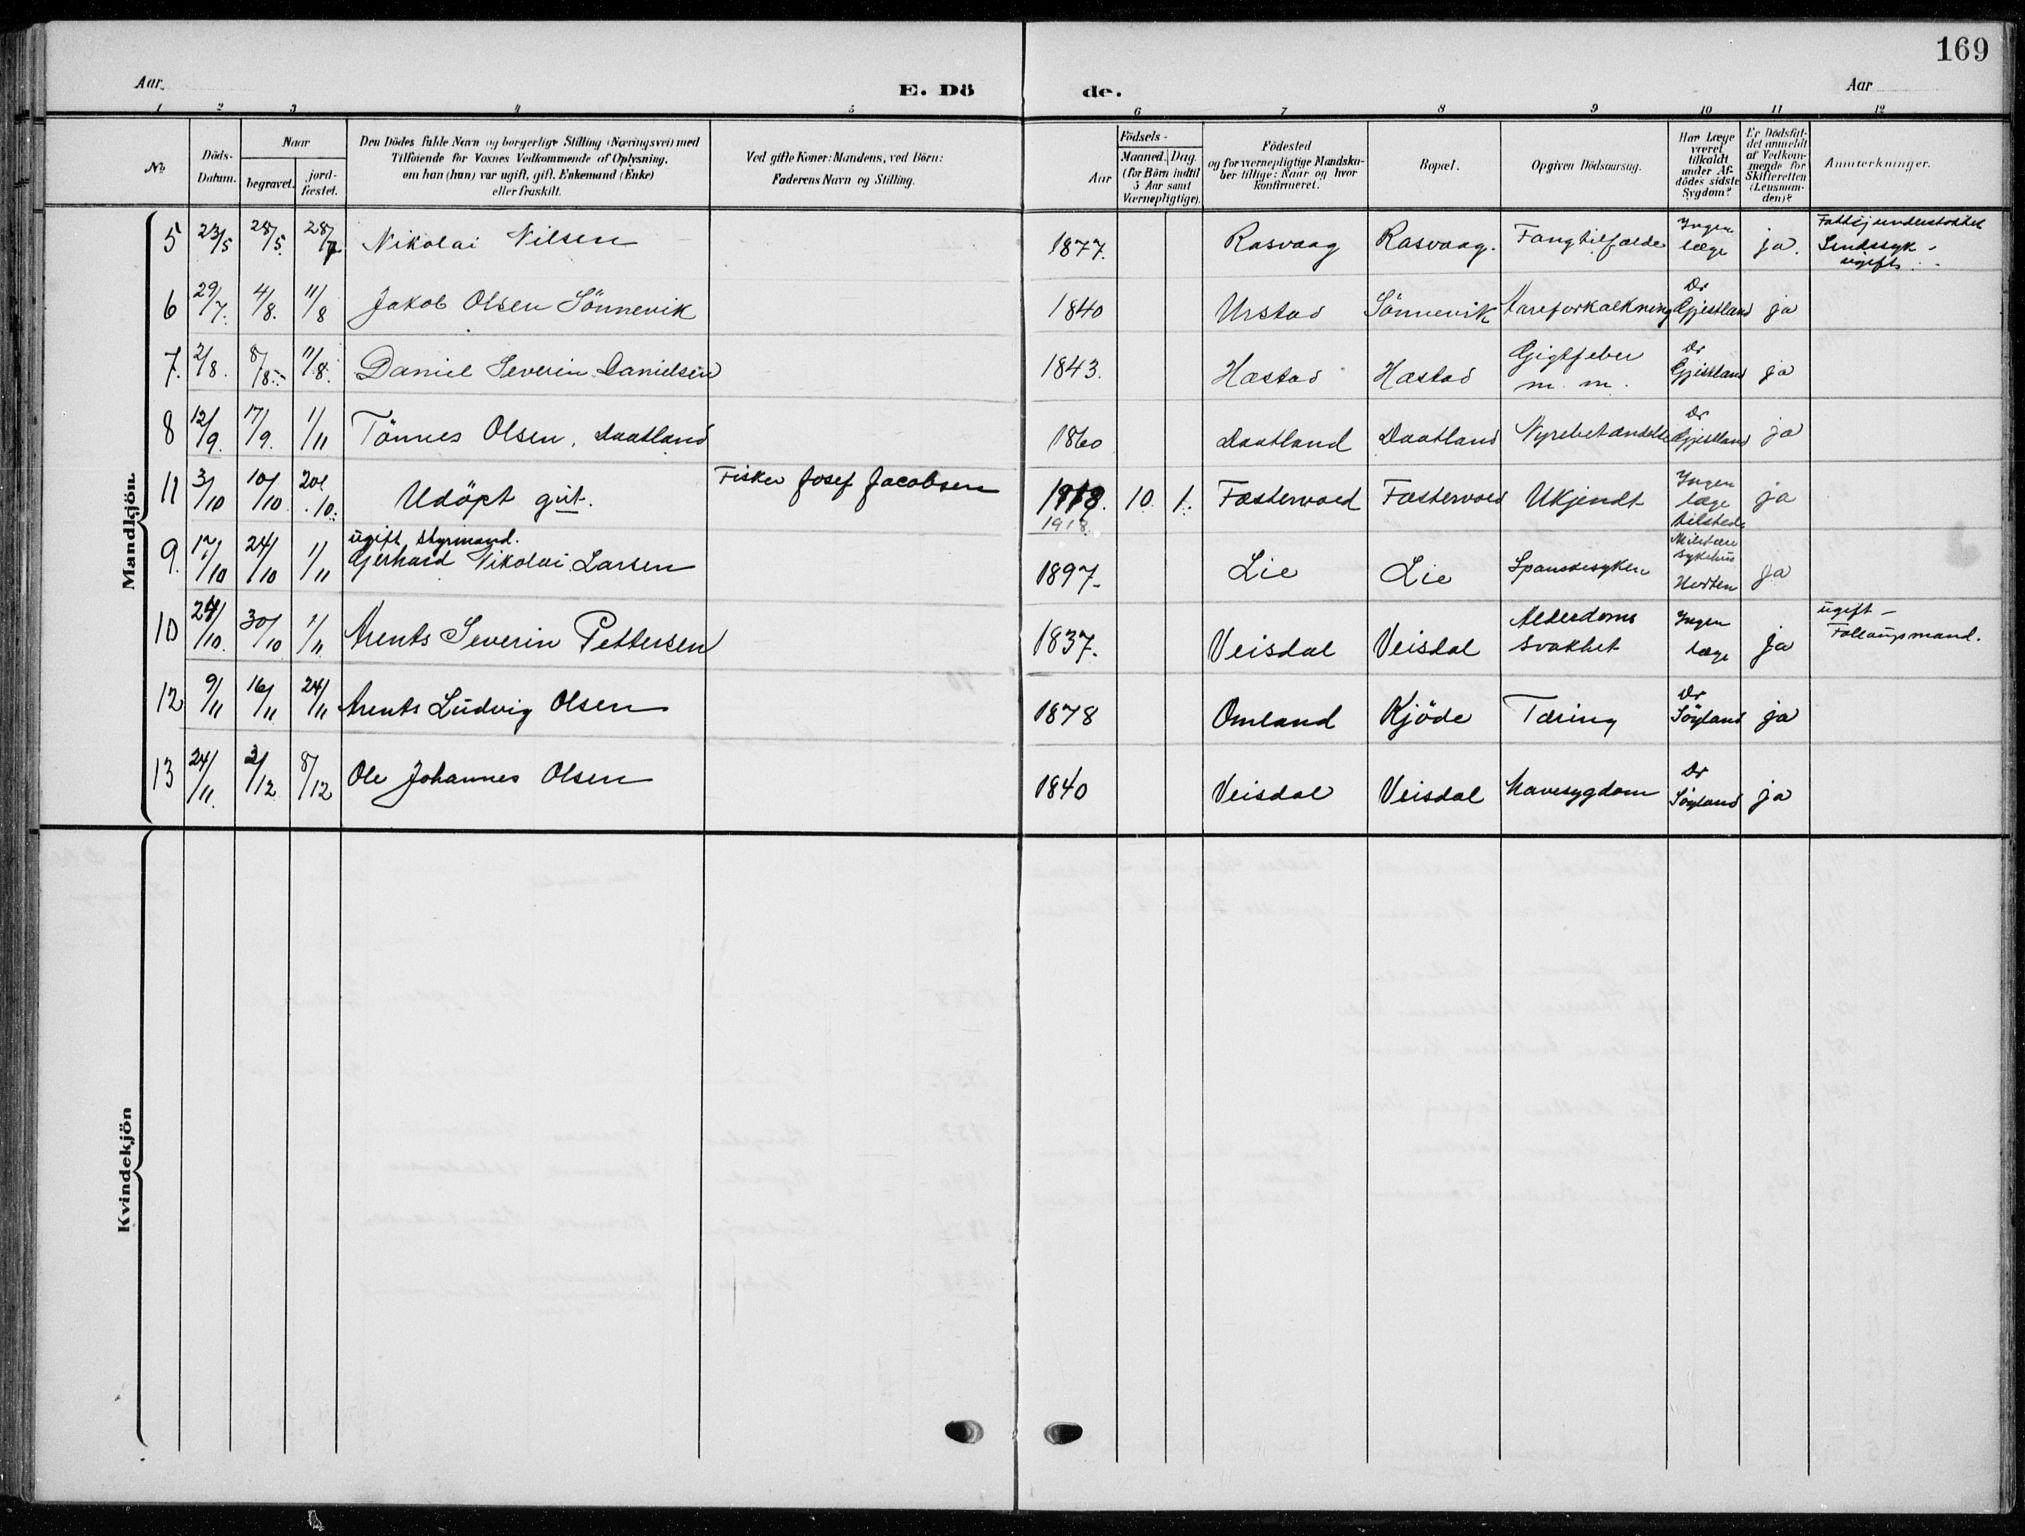 169
Aar
E. Dö
de.
Aar
1 2 3 4 5 6 7 8 9 10 11 12
No.
Döds-Datum.
Naar
begravet.
jord-fæstet.
Den Dödes fulde Navn og borgerlige Stilling (Næringsvei) med
Tilföiende for Voxnes Vedkommende af Oplysning,
om han (hun) var ugift, gift, Enkemand (Enke)
eller fraskilt.
Ved gifte Koner: Mandens, ved Börn:
Faderens Navn og Stilling.
Födsels-
Aar
Maaned. Dag.
(for Börn indtil
5 Aar samt
Værnepligtige).
Födested
og for værnepligtige Mandska-
ber tillige: Naar og hvor
konfirmeret.
Bopæl.
Opgiven Dödsaarsag.
Har Læge
været
tilkaldt
under Af-
dödes sidste
Sygdom?
Er Dödsfal-
det anmeldt
af Vedkom-
mende for
Skifteretten
(Lensman-
den)?
Anmerkninger.
Mandkjön.
5 23/5 28/5. 28/7 Nikolai Nilsen 1877. Rasvaag Rasvaag. Ingen læge ja. Sindssyk - ugift.
6 29/7. 4/8. 11/8 Jakob Olsen Sönnevik 1840 Urstad Sönnevik Aareforkalkning Dr Gjestland ja
7. 2/8. 8/8. 11/8. Daniel Severin Danielsen 1843. Hæstad Hæstad Gigtfeber m. m. Dr Gjestland ja
8 12/9. 17/9. 1/11 Tönnes Olsen, Daatland 1860 Daatland Daatland Nyrebetændelse Dr Gjestland ja
11 3/10 10/10 20/10. Udöpt gut. Fisker Josef Jacobsen 1918. 1918. 10 1. Fæstervold Fæstervold Ukjendt Ingen læge tilstede ja
9. 17/10 24/10 1/11 ugift, styrmand. Gerhard Nikolai Larsen 1897. Lie Lie Spanskesyken Militære sykehus Horten ja
10 24/10. 30/10 1/11 Arents Severin Pettersen 1837. Veisdal Veisdal Alderdoms svakhet Ingen læge ja ugift - Follaugsmand.
12 9/11 16/11 24/11 Arents Ludvig Olsen 1878 Omland Kjöde Tæring Dr Söyland ja
13 24/11. 2/12 8/12 Ole Johannes Olsen 1840 Veisdal Veisdal Mavesygdom Dr Söyland ja
Kvindekjön